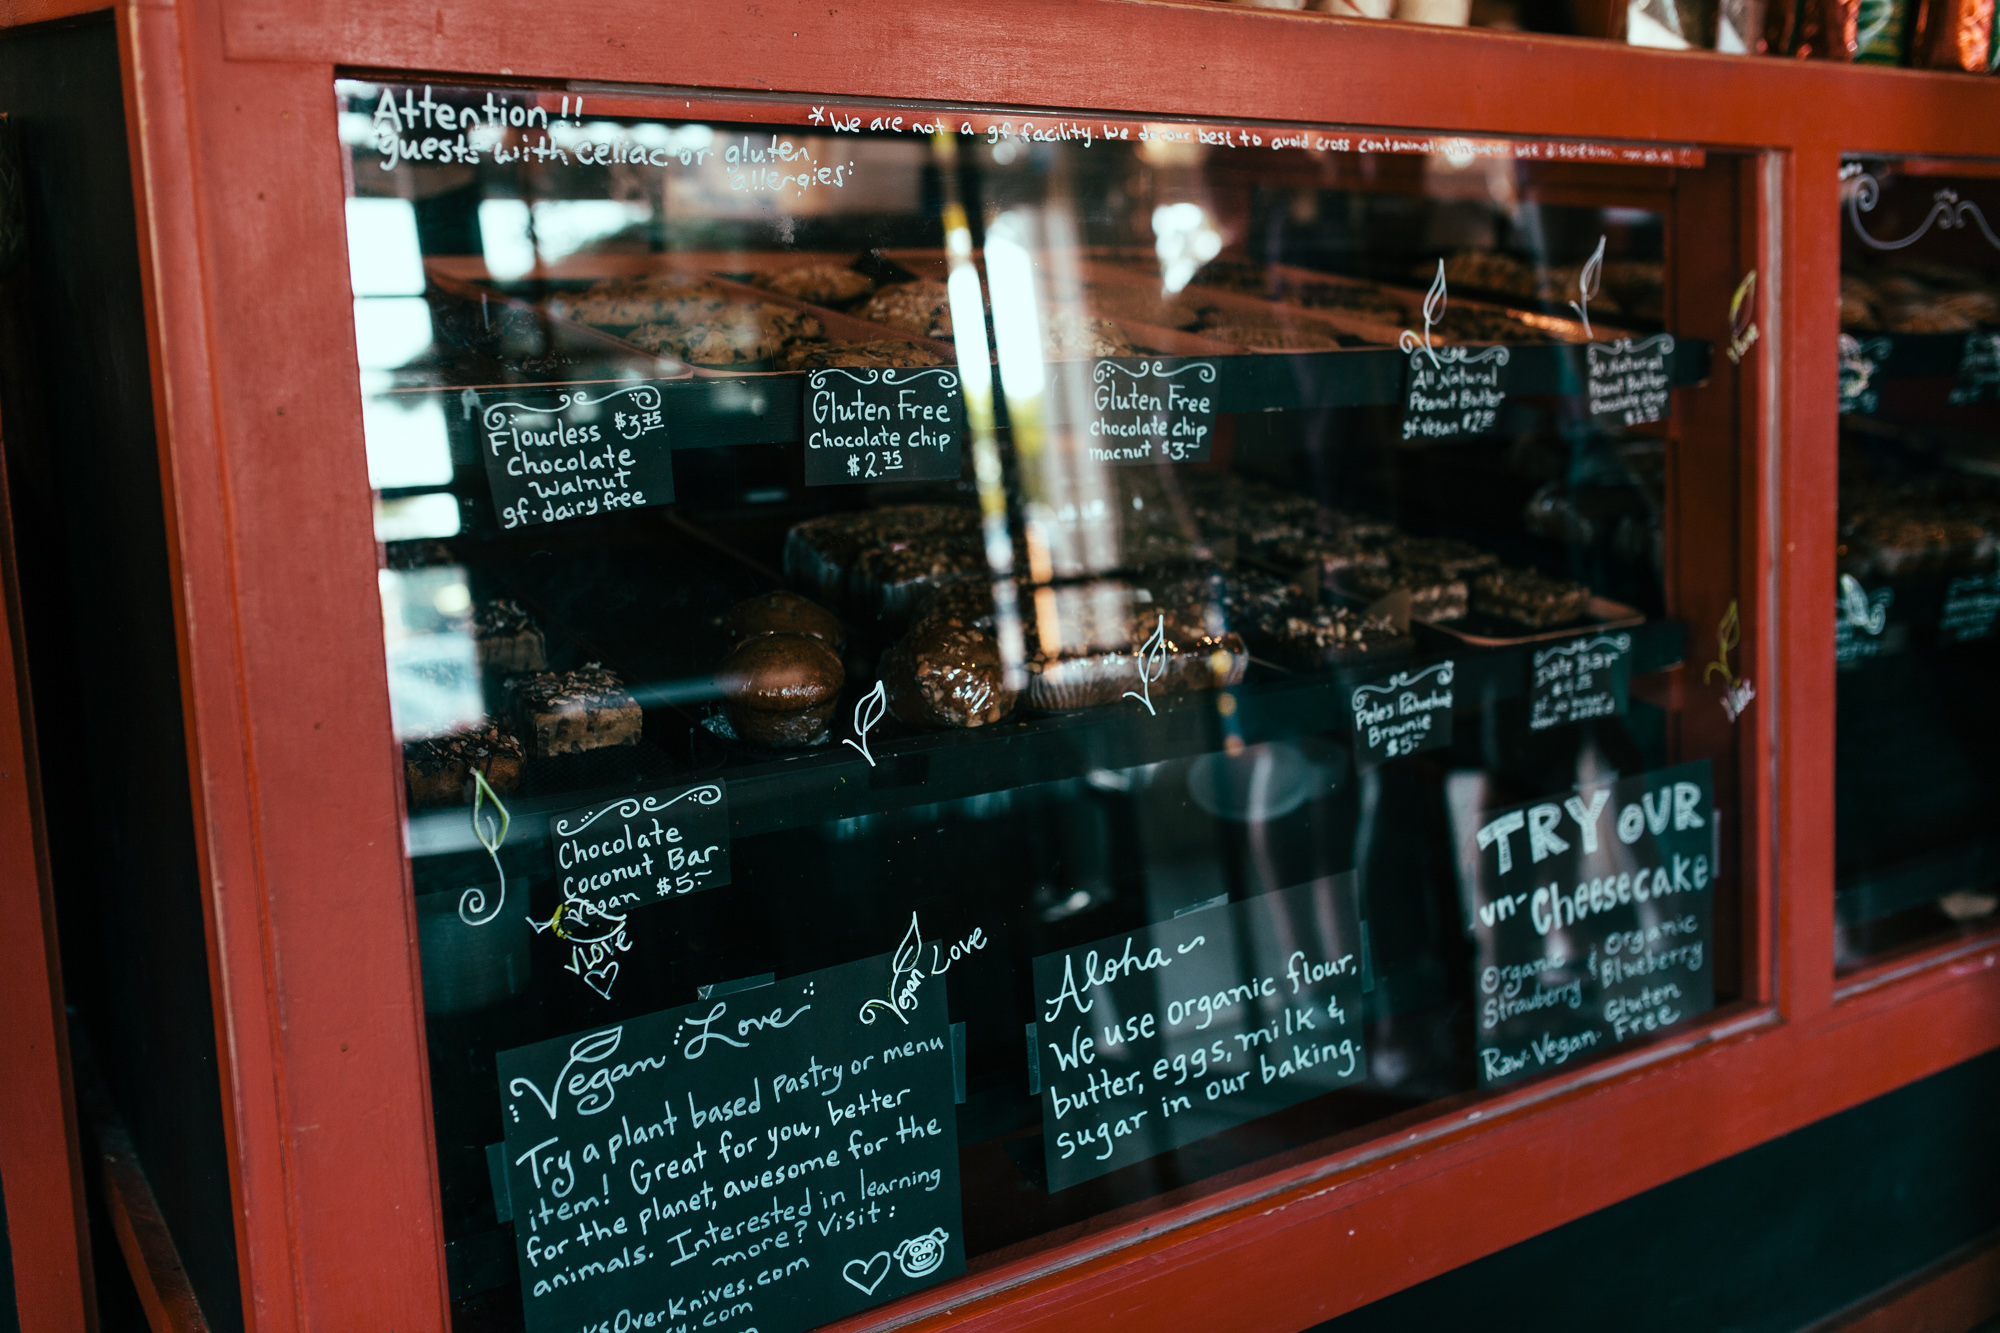 Attention !!
guests with celiac or gluten
allergies:
*We are not a gf facility. We do our best to avoid cross contamination, however use discretion.
Flourless $3.75
Chocolate
Walnut
gf. dairy free
Gluten Free
chocolate chip
$2.75
Gluten Free
chocolate chip
macnut $3.-
All Natural
Peanut Butter
gf vegan
Peanut Butter
chocolate chip
Chocolate
Coconut Bar
Vegan $5.-
VLove
Brownie
$5.-
Bar
Vegan Love
Vegan Love
Try a plant based pastry or menu
item! Great for you, better
for the planet, awesome for the
animals. Interested in learning
more? Visit:
ksOverKnives.com
.com
Aloha~
We use organic flour,
butter, eggs, milk &
sugar in our baking.
TRY OUR
un-Cheesecake
Organic
Strawberry
&
Organic
Blueberry
Raw. Vegan. Gluten
Free